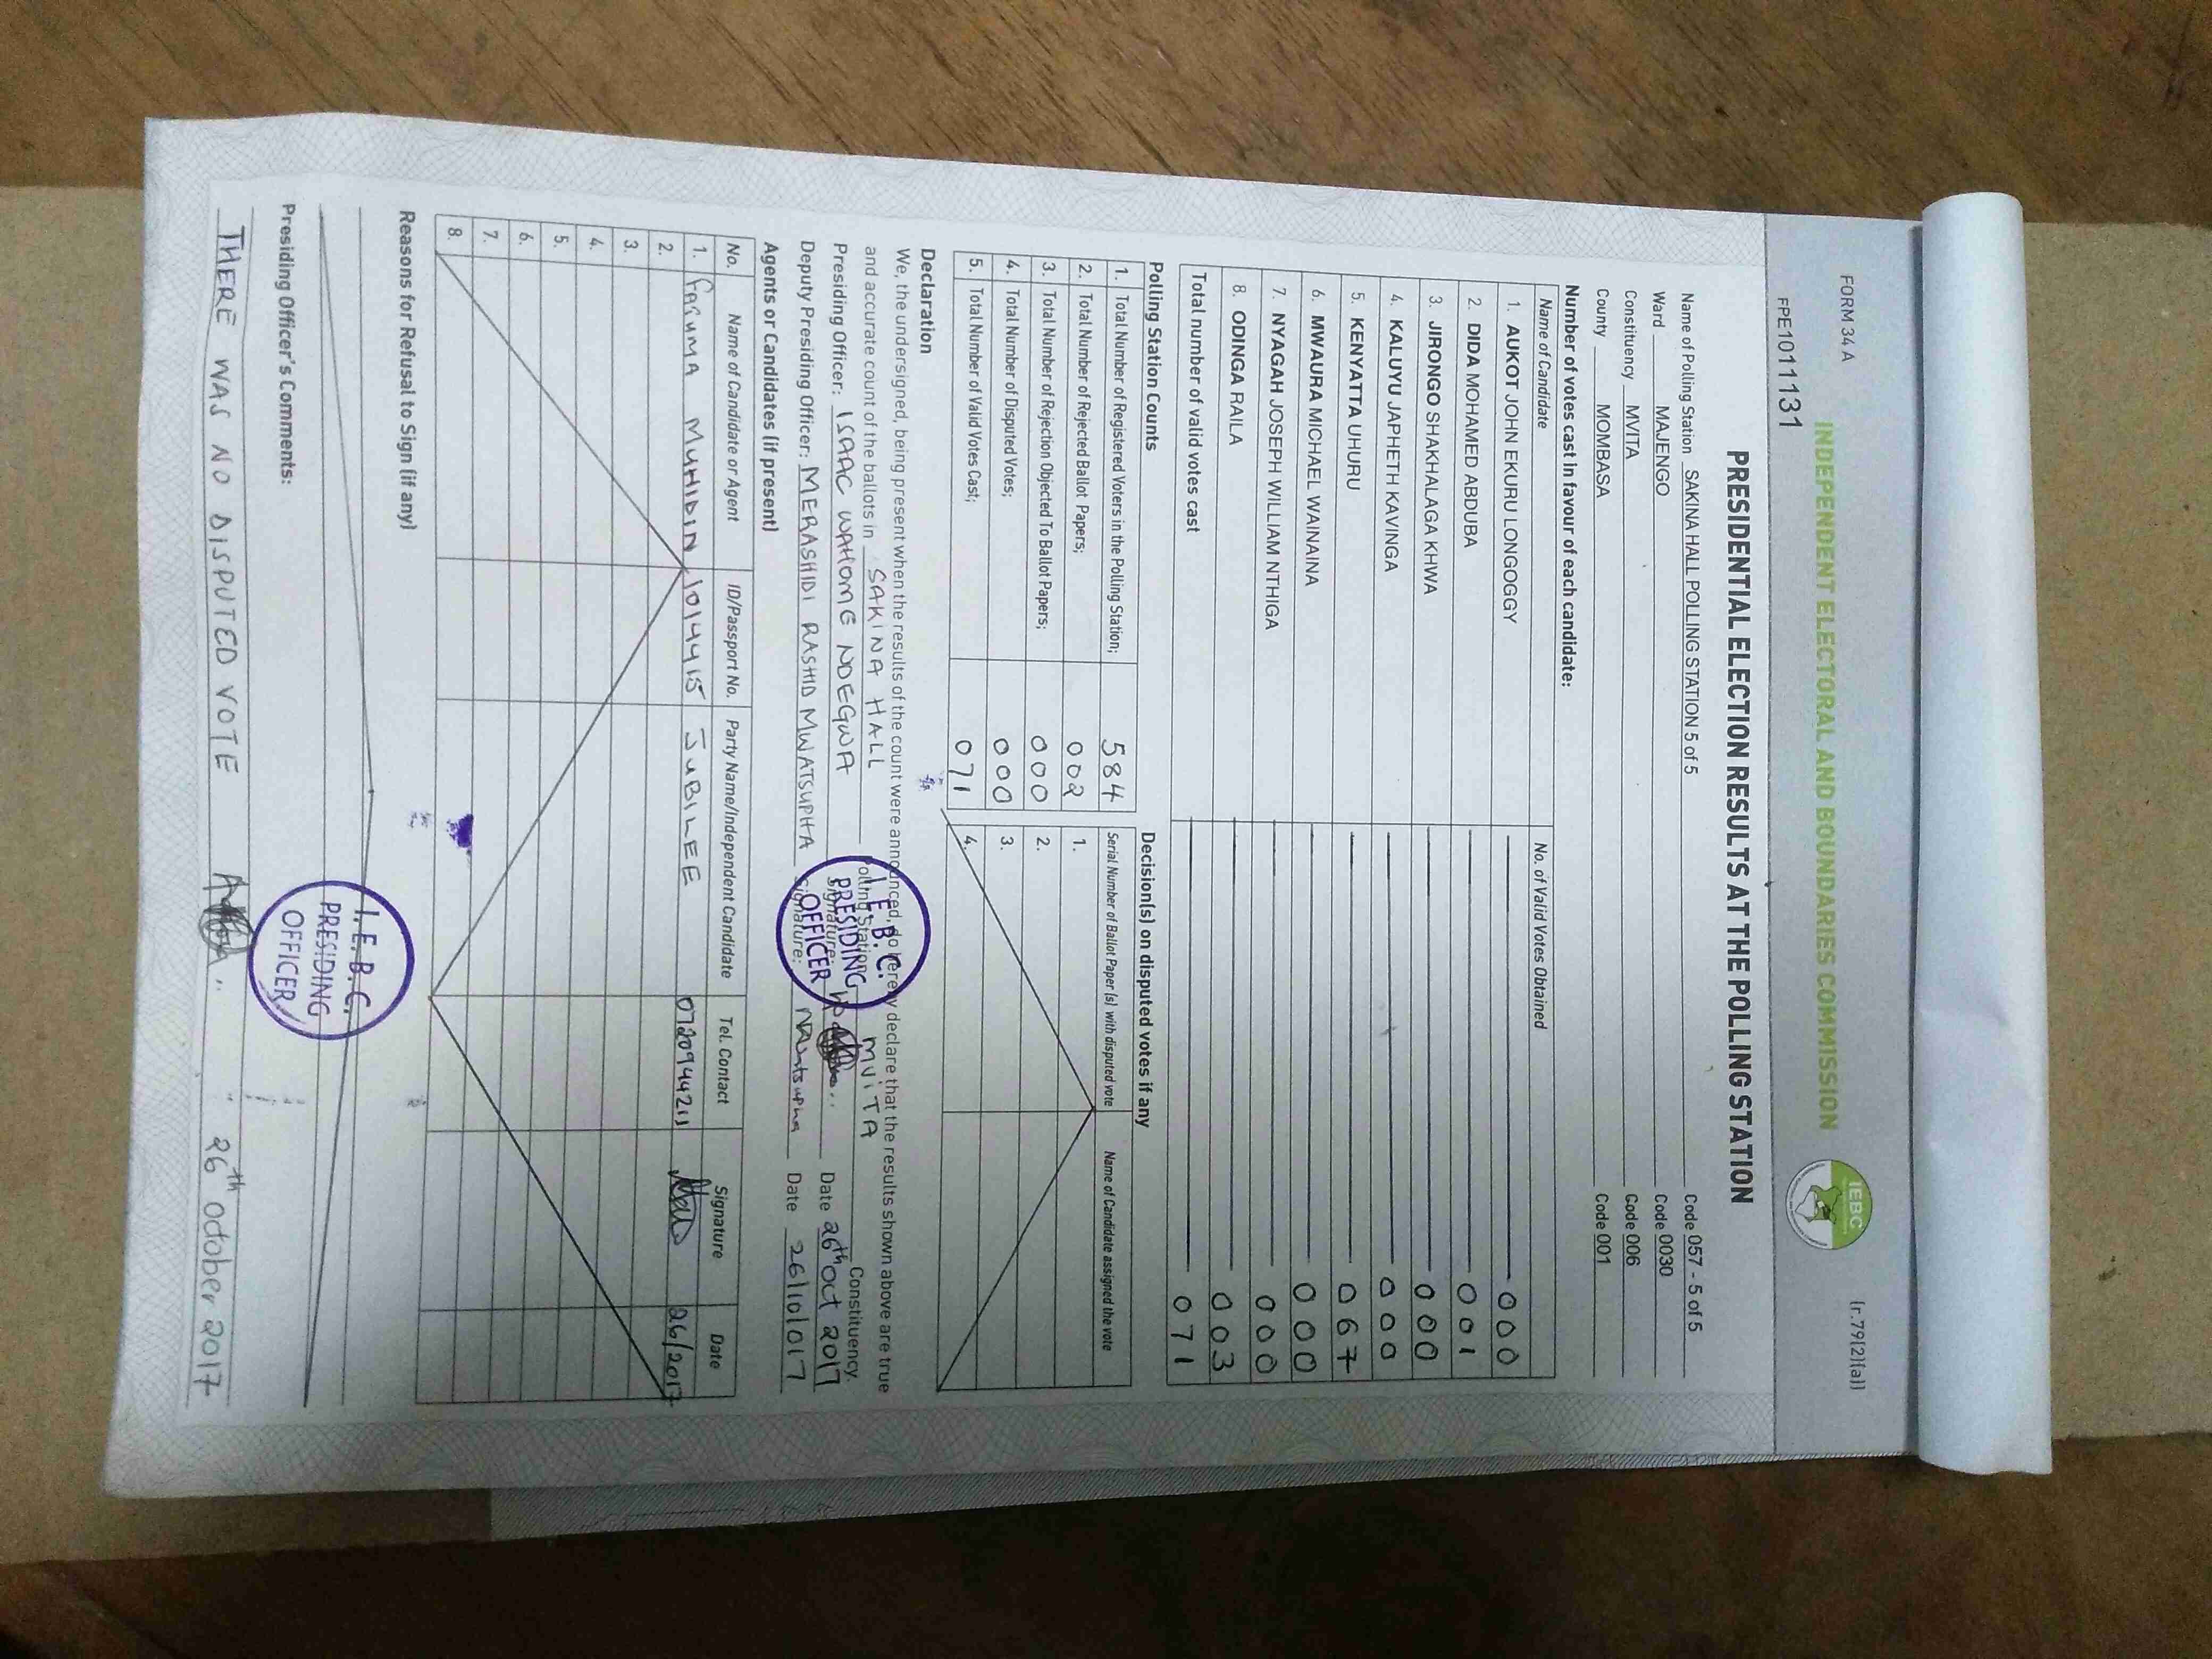 FORM 34 A
(r.79(2)(a))
INDEPENDENT ELECTORAL AND BOUNDARIES COMMISSION
IEBC
FPE1011131
PRESIDENTIAL ELECTION RESULTS AT THE POLLING STATION
Name of Polling Station SAKINA HALL POLLING STATION 5 of 5 Code 057 - 5 of 5
Ward MAJENGO Code 0030
Constituency MVITA Code 006
County MOMBASA Code 001
Number of votes cast in favour of each candidate:
Name of Candidate No. of Valid Votes Obtained
1. AUKOT JOHN EKURU LONGOGGY 000
2. DIDA MOHAMED ABDUBA 001
3. JIRONGO SHAKHALAGA KHWA 000
4. KALUYU JAPHETH KAVINGA 000
5. KENYATTA UHURU 067
6. MWAURA MICHAEL WAINAINA 000
7. NYAGAH JOSEPH WILLIAM NTHIGA 000
8. ODINGA RAILA 003
Total number of valid votes cast 071
Polling Station Counts
1. Total Number of Registered Voters in the Polling Station; 584
2. Total Number of Rejected Ballot Papers; 002
3. Total Number of Rejection Objected To Ballot Papers; 000
4. Total Number of Disputed Votes; 000
5. Total Number of Valid Votes Cast; 071
Decision(s) on disputed votes if any
Serial Number of Ballot Paper (s) with disputed vote Name of Candidate assigned the vote
1.
2.
3.
4.
Declaration
We, the undersigned, being present when the results of the count were announced, do hereby declare that the results shown above are true
and accurate count of the ballots in SAKINA HALL Polling Station MVITA Constituency.
Presiding Officer: ISAAC WAHOME NDEGWA Signature: Date 26th Oct 2017
Deputy Presiding Officer: MERASHIDI RASHID MWATSUPHA Signature: Date 26/10/017
I.E.B.C.
PRESIDING
OFFICER
Agents or Candidates (if present)
No. Name of Candidate or Agent ID/Passport No. Party Name/Independent Candidate Tel. Contact Signature Date
1. MUHIDIN 1014415 JUBILEE 0720944211 26/2017
2.
3.
4.
5.
6.
7.
8.
Reasons for Refusal to Sign (if any)
I.E.B.C.
PRESIDING
OFFICER
Presiding Officer's Comments:
THERE WAS NO DISPUTED VOTE 26th October 2017